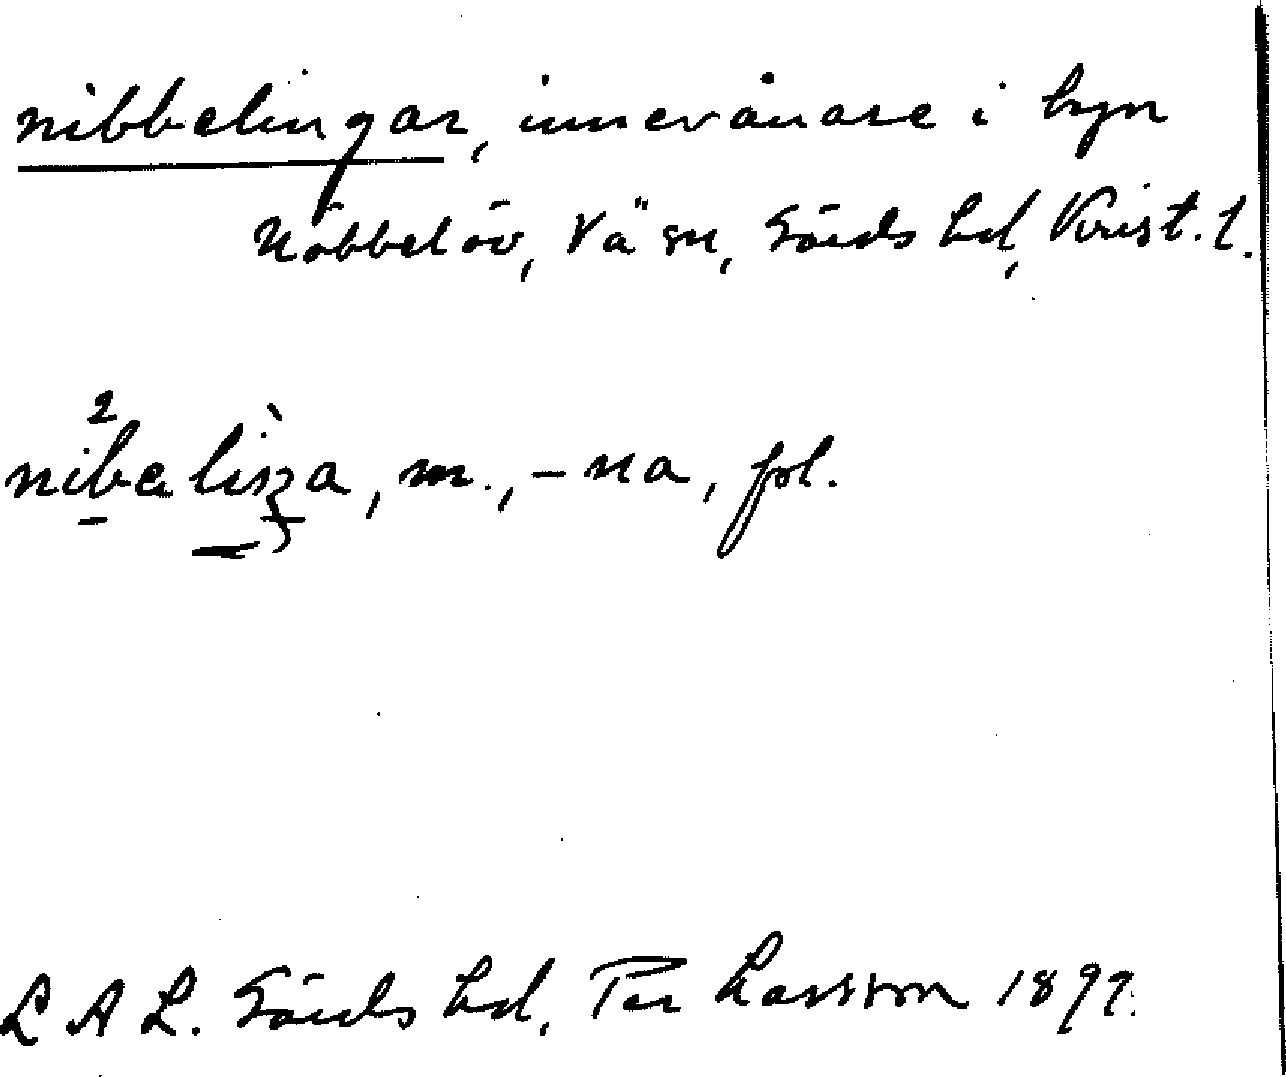 nibbelingar, innevånare i byn
Nöbbelöv, Vä sn, Gärds hd, Krist. l.
nibeliŋa, m., -na, pl.
L A L. Gärds hd, Per Larsson 1897.